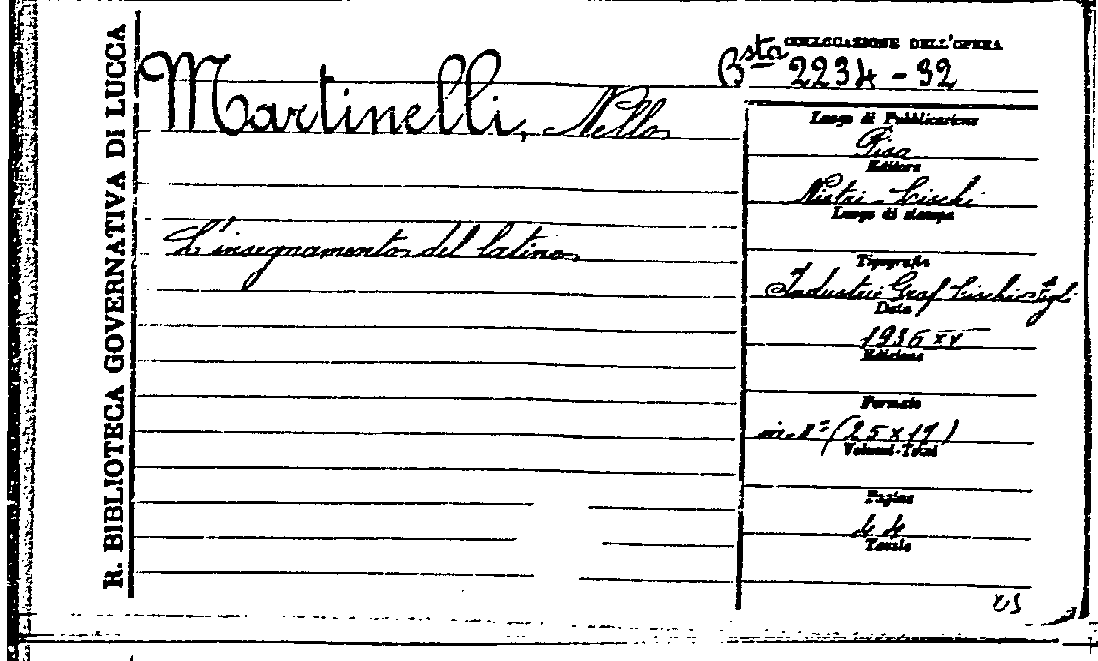 R. BIBLIOTECA GOVERNATIVA DI LUCCA
COLLOCAZIONE DELL'OPERA
Bsta 2234 - 32
Martinelli, Nello
L'insegnamento del latino
Luogo di Pubblicazione
Pisa
Editore
Nistri-Lischi
Luogo di stampa
Tipografia
Industrie Graf Lischi e Figli
Data
1936 XV
Edizione
Formato
in-8° (25x17)
Volumi-Tomi
Pagine
44
Tavole